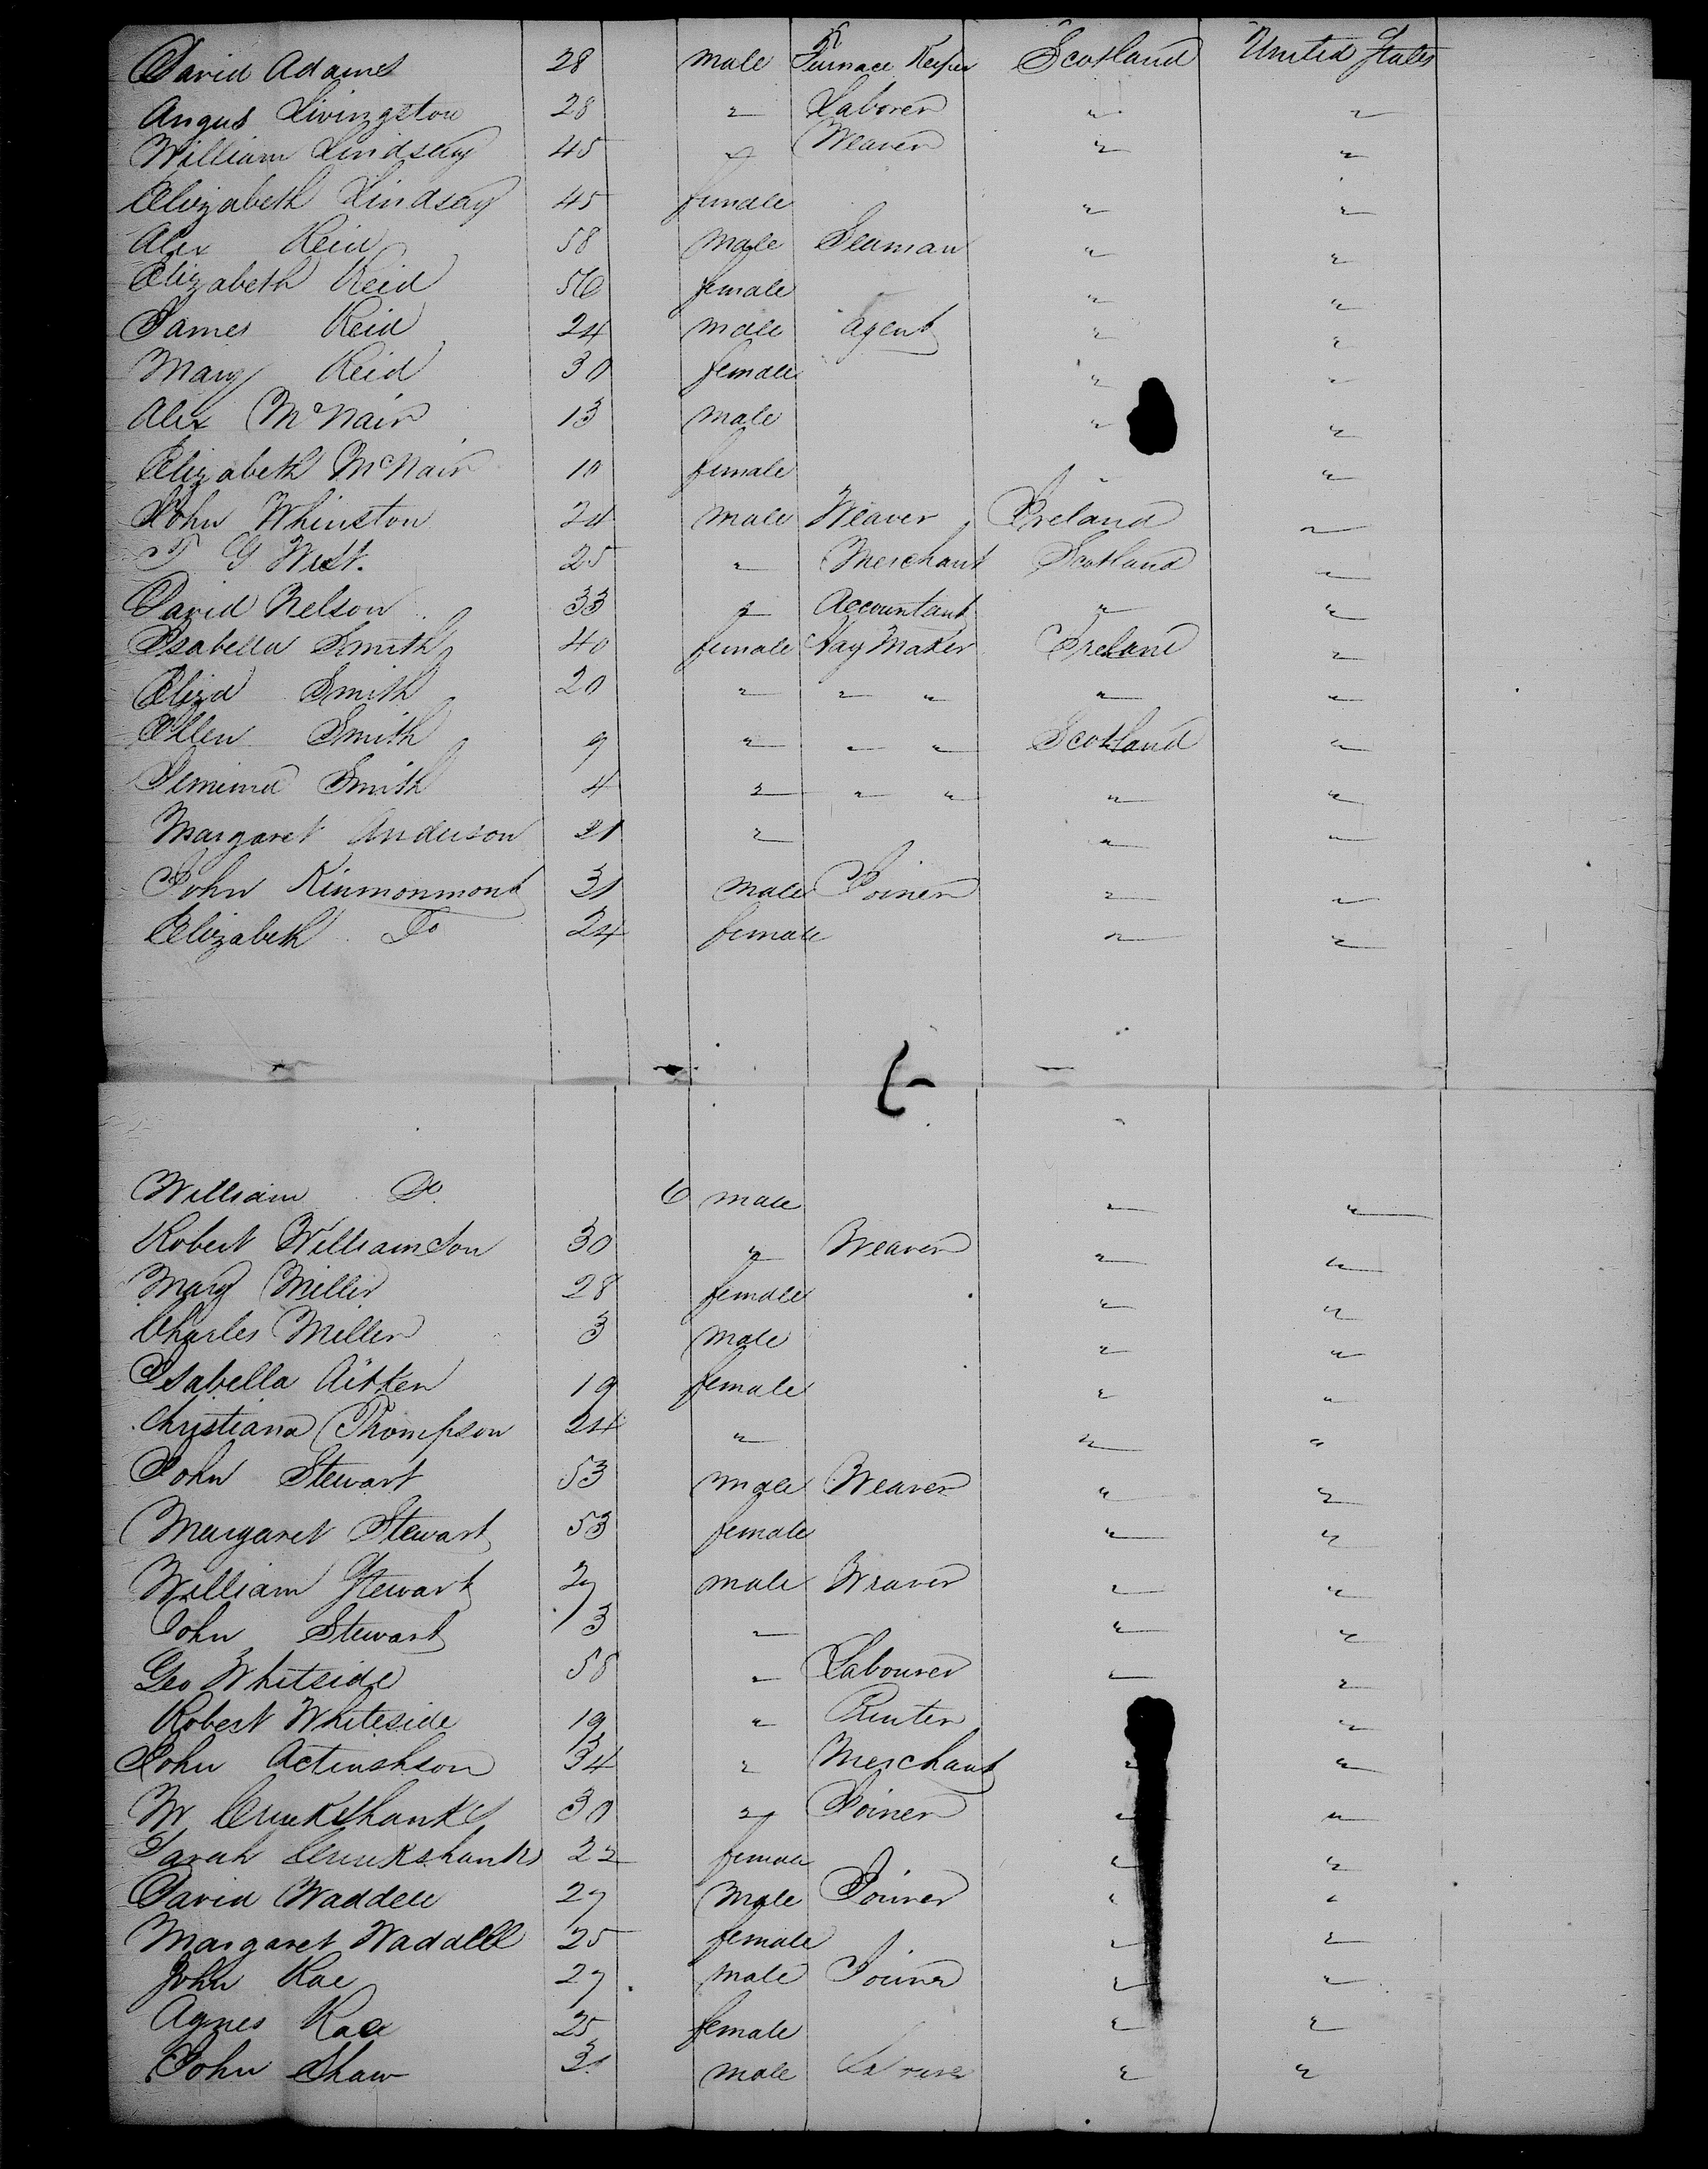 David Adams 28 male Furnace Keeper Scotland United States
Angus Livingston 28 " Laborer " "
William Lindsay 45 " Weaver " "
Elizabeth Lindsay 45 female " "
Alex Reid 58 male Seaman " "
Elizabeth Reid 56 female " "
James Reid 24 male Agent " "
Mary Reid 30 female " "
Alex McNair 13 male " "
Elizabeth McNair 10 female " "
John Whinston 24 male Weaver Ireland "
T G West. 25 " Merchant Scotland "
David Nelson 33 " Accountant " "
Isabella Smith 40 female Hay Maker Ireland "
Eliza Smith 20 " " " " "
Ellen Smith 9 " " " Scotland "
Jemima Smith 4 " " " " "
Margaret Anderson 21 " " "
John Kinmonmont 31 male Joiner " "
Elizabeth Do 24 female " "
William Do 6 male " "
Robert Williamson 30 " Weaver " "
Mary Miller 28 female " "
Charles Miller 3 male " "
Isabella Aitken 19 female " "
Christiana Thompson 24 " " "
John Stewart 53 male Weaver " "
Margaret Stewart 53 female " "
William Stewart 27 male Weaver " "
John Stewart 13 " " "
Geo Whitside 58 " Labourer " "
Robert Whiteside 19 " " "
John 34 " Merchant " "
W Cruikshanks 30 " Joiner " "
Sarah Cruikshanks 22 female " "
David Waddell 27 Male Joiner " "
Margaret Wadalll 25 female " "
John Rae 27 male Joiner " "
Agnes Rae 25 female " "
John Shaw male " "